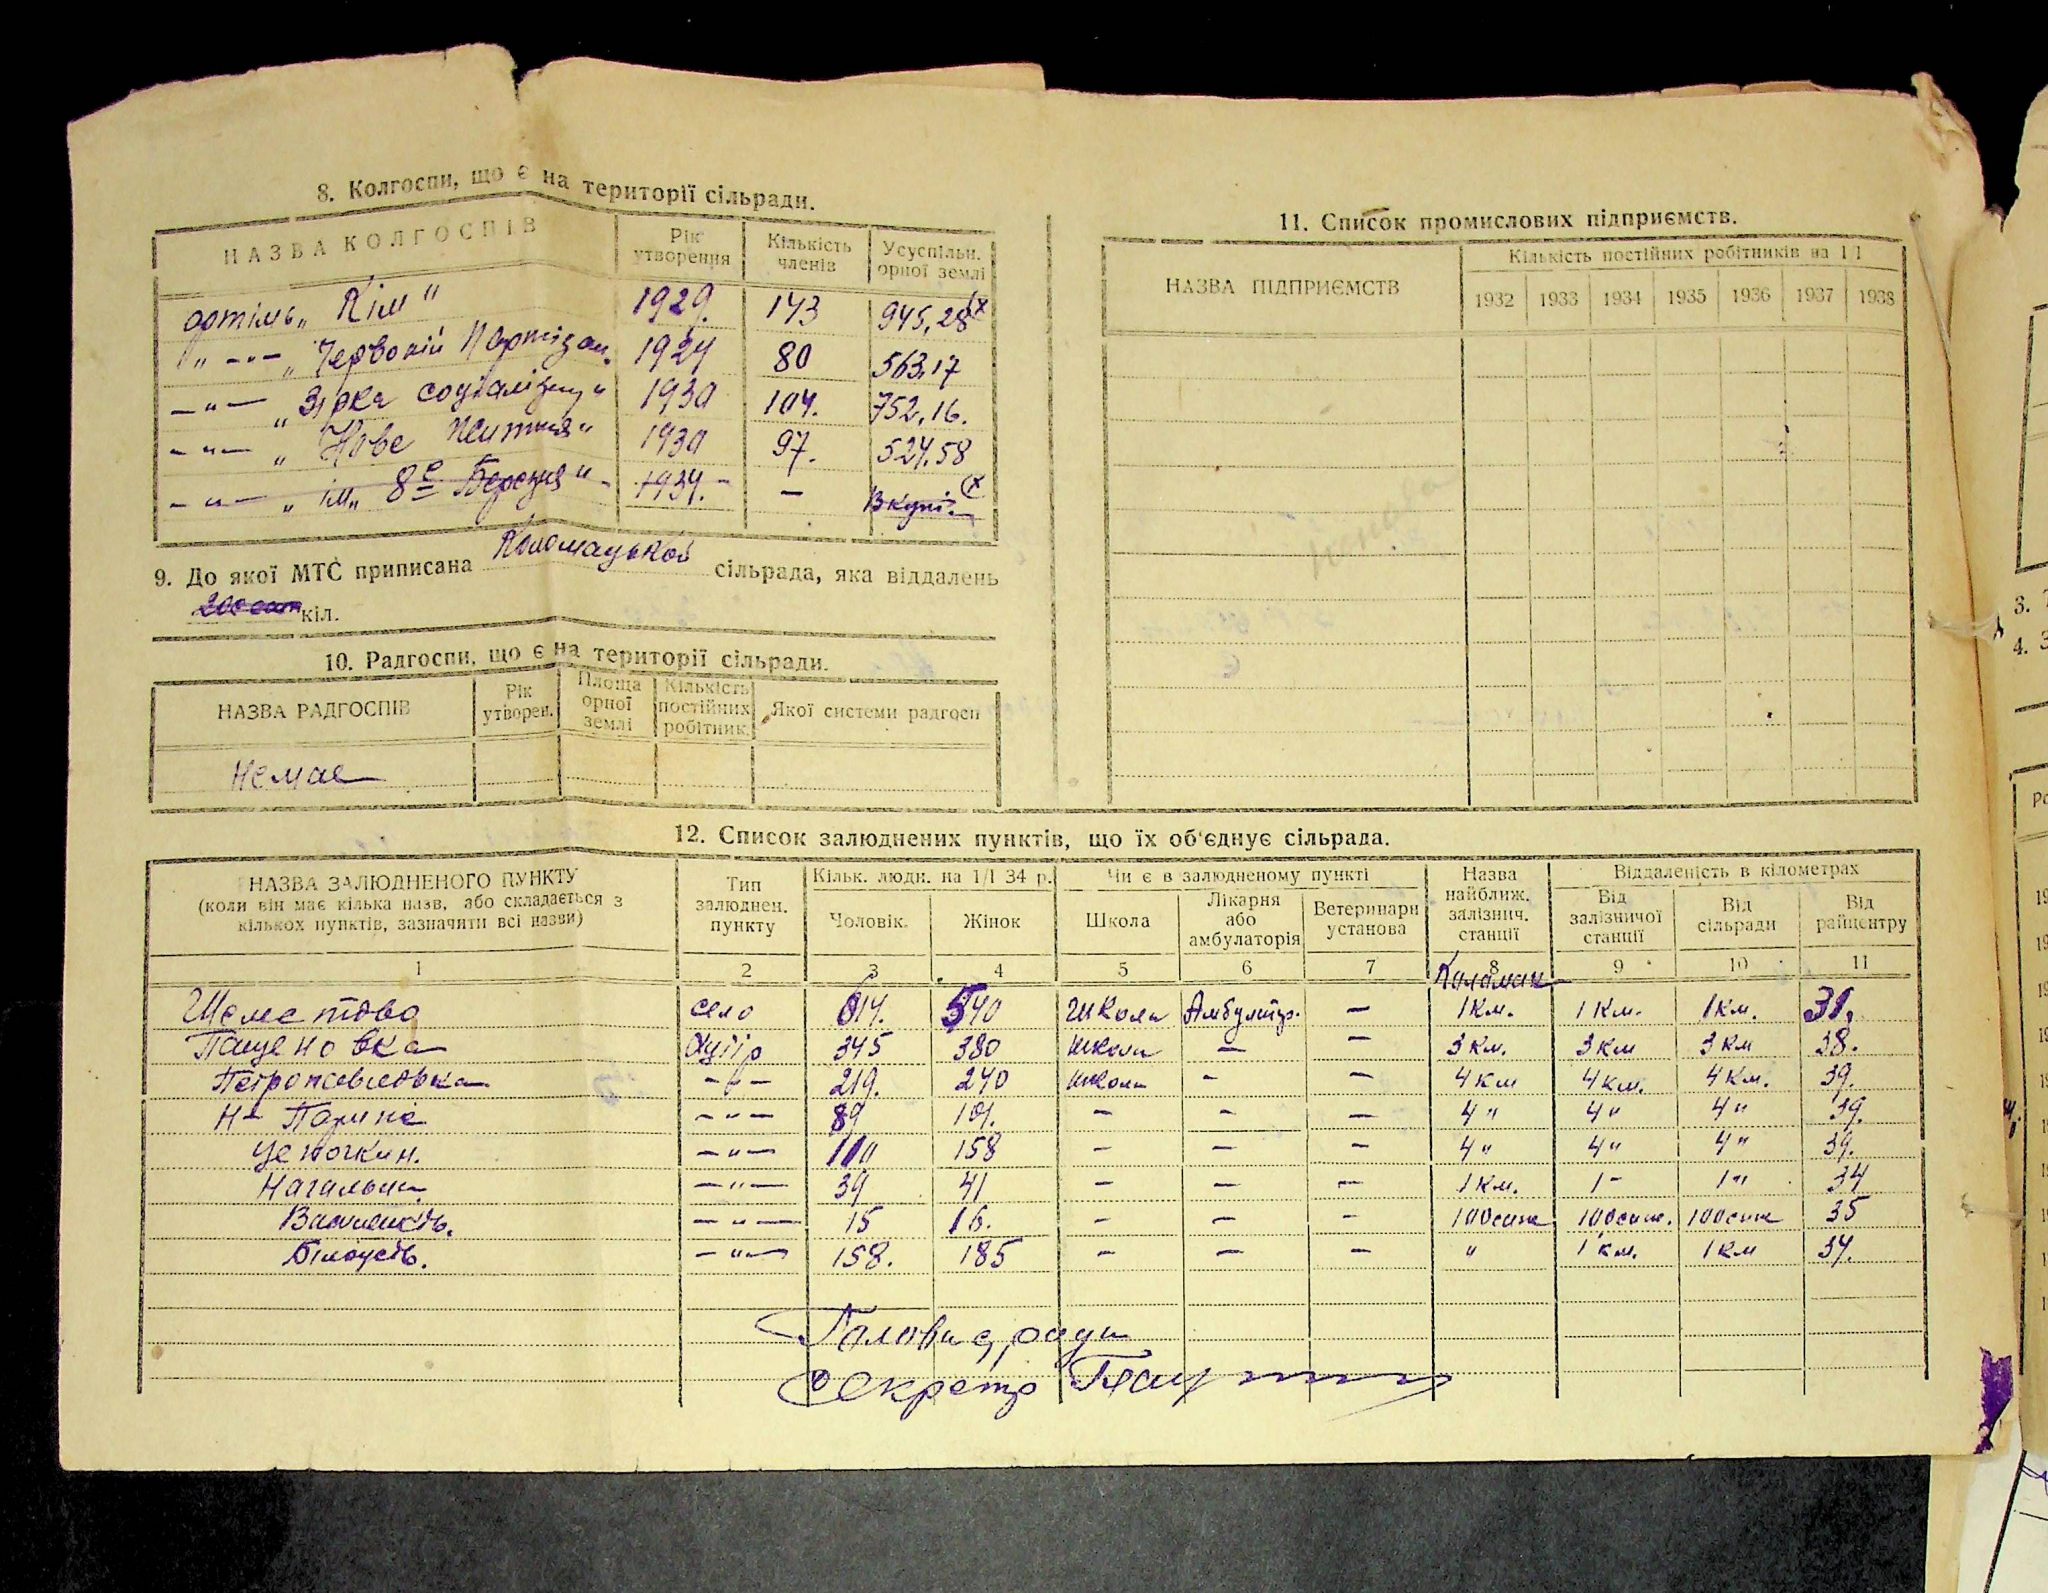 8. Колгоспи, що є на території сільради.
НАЗВА КОЛГОСПІВ Рік утворення Кількість членів Усуспільн. орної землі
артіль „Кім" 1929. 143 945,28 (х
„ -"- „Червоний Партізан. 1924 80 563,17
-"- „Зірка соціалізму" 1930 104. 752,16.
-"- „Нове Життя" 1930 97. 524.58
-"- „ім„ 8е Березня" - 1934. - - Вкупі. (х
9. До якої МТС приписана Коломацькой сільрада, яка віддалень
кіл.
10. Радгоспи, що є на території сільради.
НАЗВА РАДГОСПІВ Рік утворен. Площа орної землі Кількість постійних робітник. Якої системи радгосп
Немає
11. Список промислових підприємств.
НАЗВА ПІДПРИЄМСТВ Кількість постійних робітників на 1/I
1932 1933 1934 1935 1936 1937 1938
12. Список залюднених пунктів, що їх об'єднує сільрада.
НАЗВА ЗАЛЮДНЕНОГО ПУНКТУ (коли він має кілька назв, або складається з кількох пунктів, зазначити всі назви) Тип залюднен. пункту Кільк. людн. на 1/I 34 р. Чи є в залюдненому пункті Назва найближ. залізнич. станції Віддаленість в кілометрах
Чоловік. Жінок Школа Лікарня або амбулаторія Ветеринарн установа Від залізничої станції Від сільради Від райцентру
1 2 3 4 5 6 7 8 9 10 11
Коломак
Шелестово село 614. 540 школа Амбулятор. - 1 км. 1 км. 1 км. 31.
Пащеновка Хутір 345 380 школа - - 3 км. 3 км 3 км 38.
Петропавловка -"- 219. 240 школа - - 4 км 4 км. 4 км. 39.
-"- 89 101. - - - 4 " 4 " 4 " 39.
Цепочкин. -"- 110 158 - - - 4 " 4 " 4 " 39.
-"- 39 41 - - - 1 км. 1 - 1 " 34
-"- 15 16. - - - 100 саж 100 саж. 100 саж 35
Білоусів. -"- 158. 185 - - - " 1 км. 1 км 34.
Голова с/ради
Секретр
3.
4. З